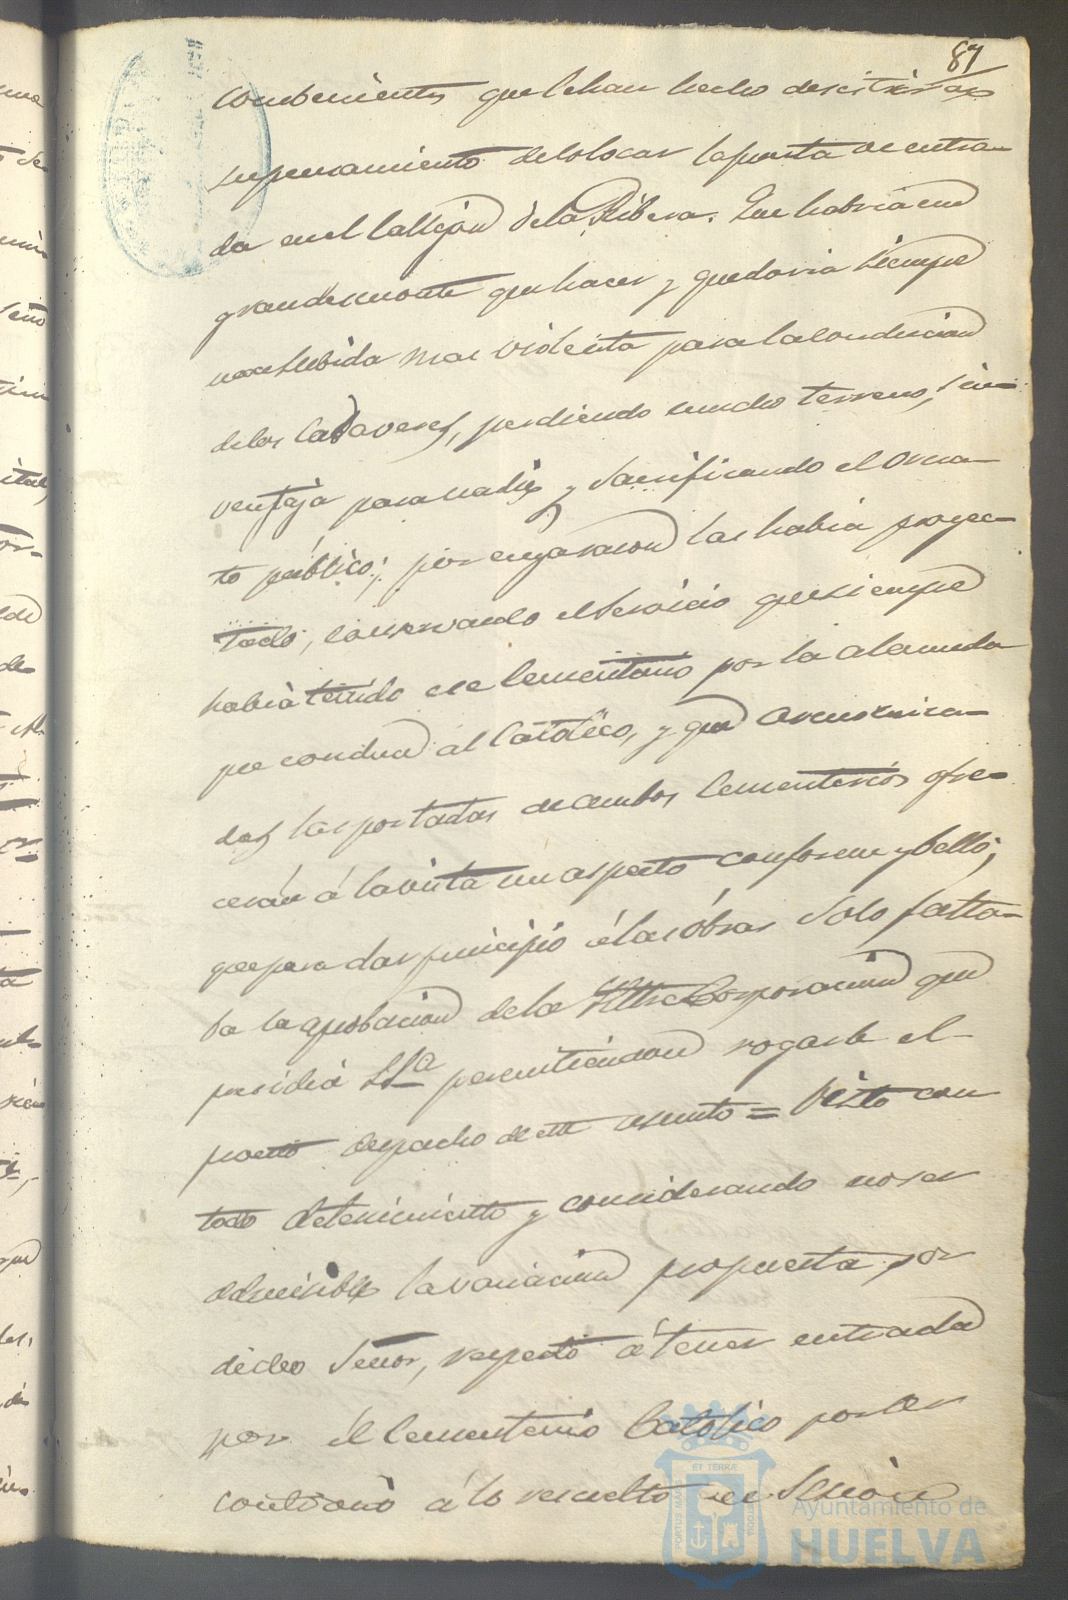 87
combenientes que le han hecho desistir de
su pensamiento de colocar la puerta de entra-
da en el Callejon de la Ribera. Que habria un
gran desmonte que hacer y quedaria siempre
una subida mas violenta para la conducion
de los Cadaveres, perdiendo mucho terreno, sin
ventaja para nadie y sacrificando el orna-
to público; por cuya razon las habia proyec-
tado, conservando el servicio que siempre
habia tenido ese Cementerio por la alameda
que conduce al Católico, y que armoniza-
das las portadas de ambos Cementerios ofre-
cerán á la vista un aspecto conforme y bello;
que para dar principio á las óbras solo falta-
ba la aprobacion de la Iltre Corporacion que
presidia SSª permitiendose rogarle el
pronto despacho de este asunto = Visto con
todo detenimiento y considerando no ser
admisible la variacion propuesta por
dicho Señor, respecto á tener entrada
por el Cementerio Catolico por ser
contrario á lo resuelto en Sesion
Ayuntamiento de
HUELVA
PORTUS MARIS
ET TERRÆ
CUSTODIA